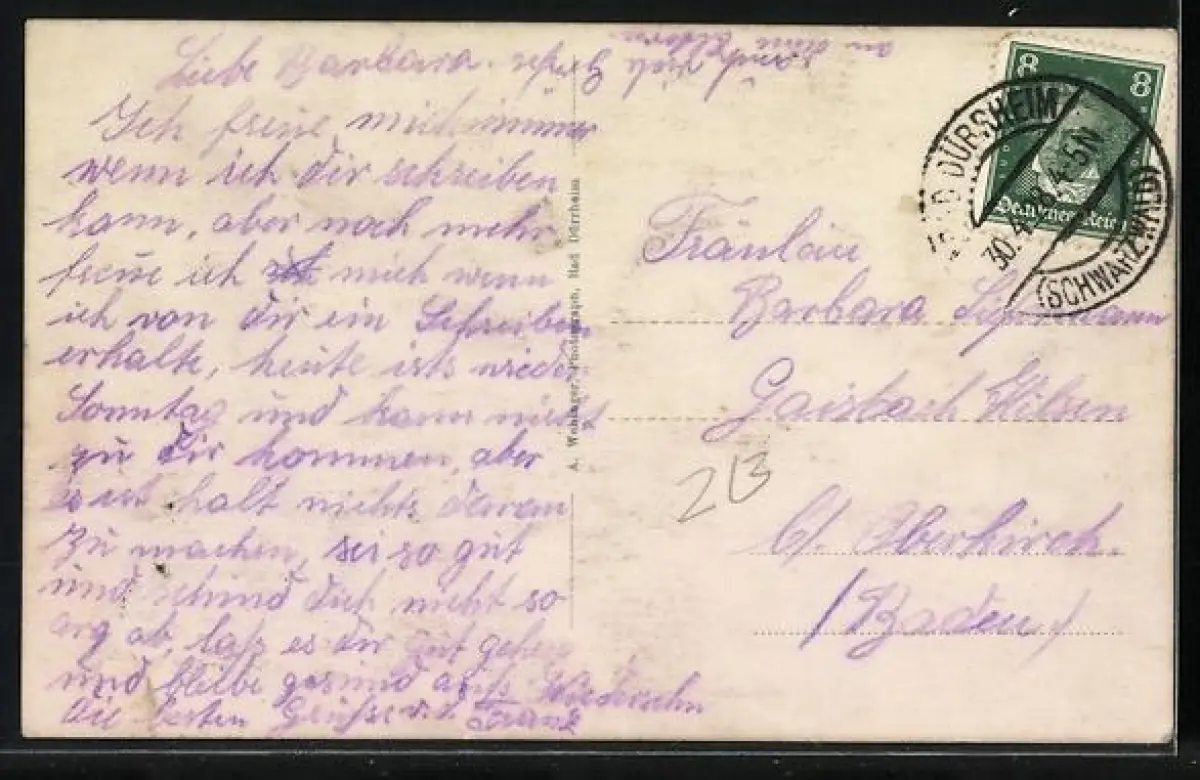 Liebe Barbara.
Ich freue mich immer
wenn ich dir schreiben
kann, aber noch mehr
freue ich mich wenn
ich von dir ein Schreiben
erhalte, heute ists wieder
Sonntag und kann nicht
zu dir kommen, aber
es ist halt nichts daran
zu machen, sei so gut
und schind dich nicht so
arg ab, laß es dir gut gehen
und bleibe gesund aufs Wiedersehn
die besten Grüße v. d. Franz
auch viele Grüße
an deine Eltern
A. Wehinger, Photograph, Bad Dürrheim
8 8
Deutsches Reich
BAD DÜRRHEIM
30.4. 4-5N
(SCHWARZWALD)
Fräulein
Barbara
Gaisbach
b/. Oberkirch.
/Baden/
213